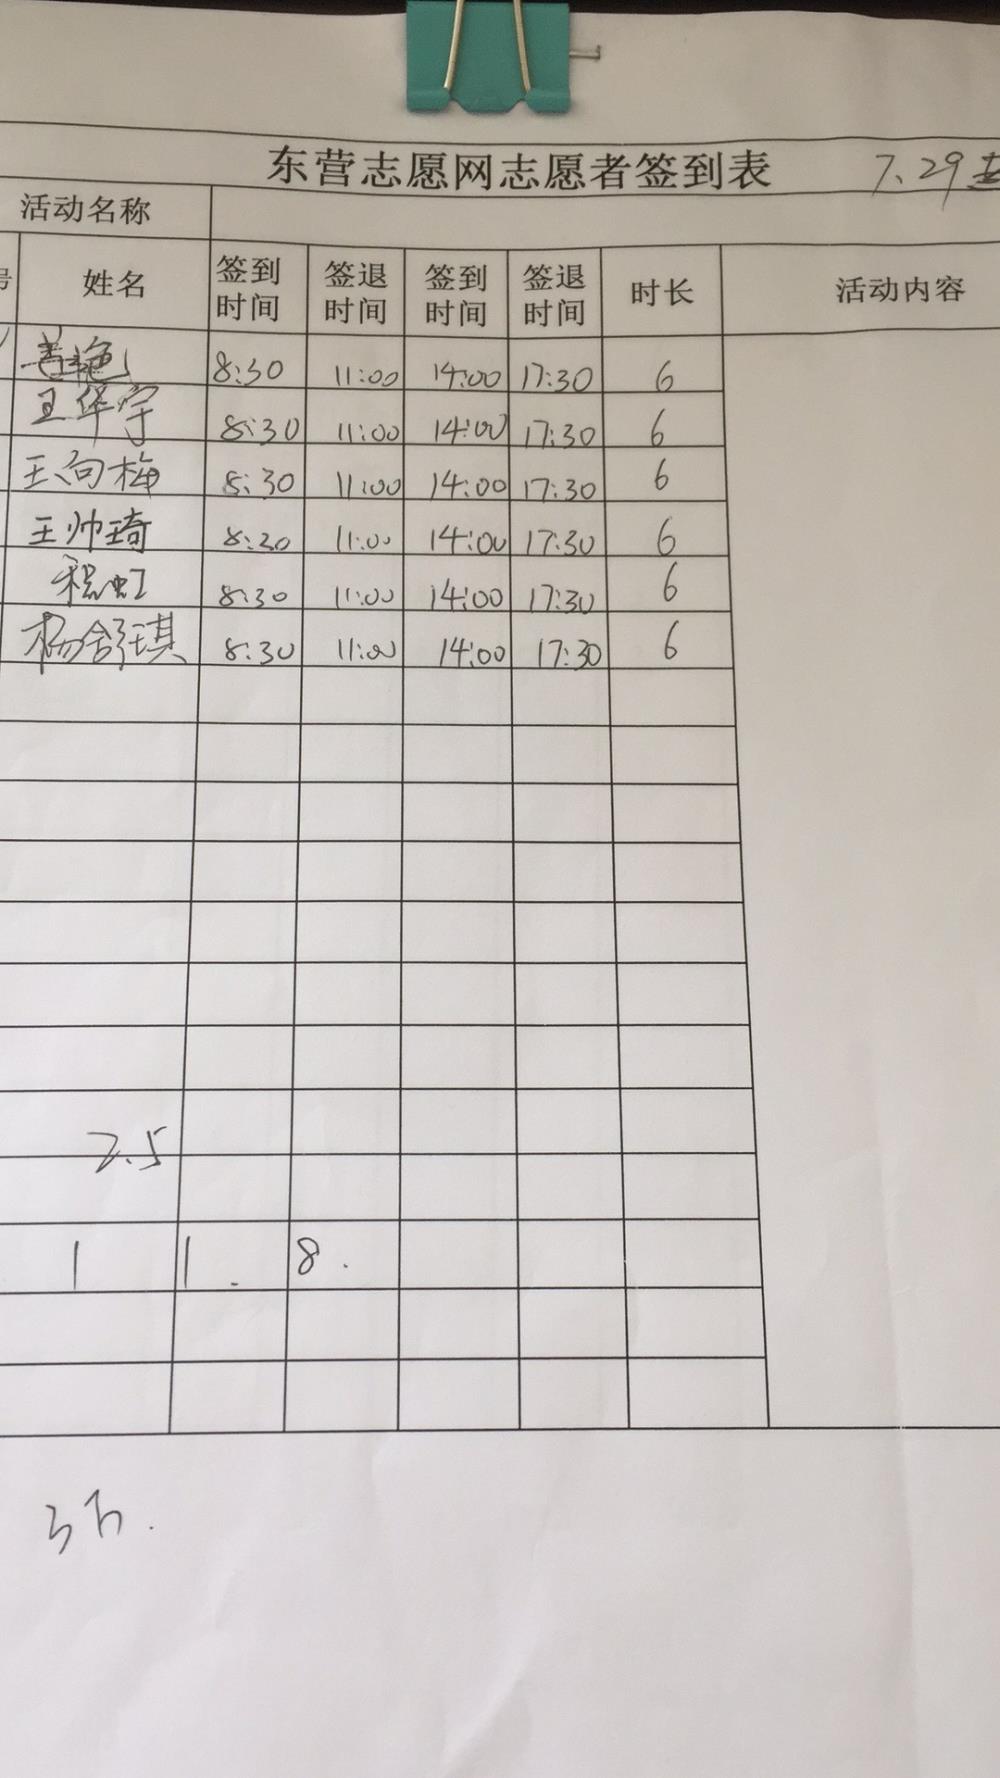 东营志愿网志愿者签到表 7.29
活动名称
号 姓名 签到时间 签退时间 签到时间 签退时间 时长 活动内容
8:30 11:00 14:00 17:30 6
王华宇 8:30 11:00 14:00 17:30 6
王向梅 8:30 11:00 14:00 17:30 6
王帅琦 8:30 11:00 14:00 17:30 6
程虹 8:30 11:00 14:00 17:30 6
杨舒琪 8:30 11:00 14:00 17:30 6
2.5
1 1. 8.